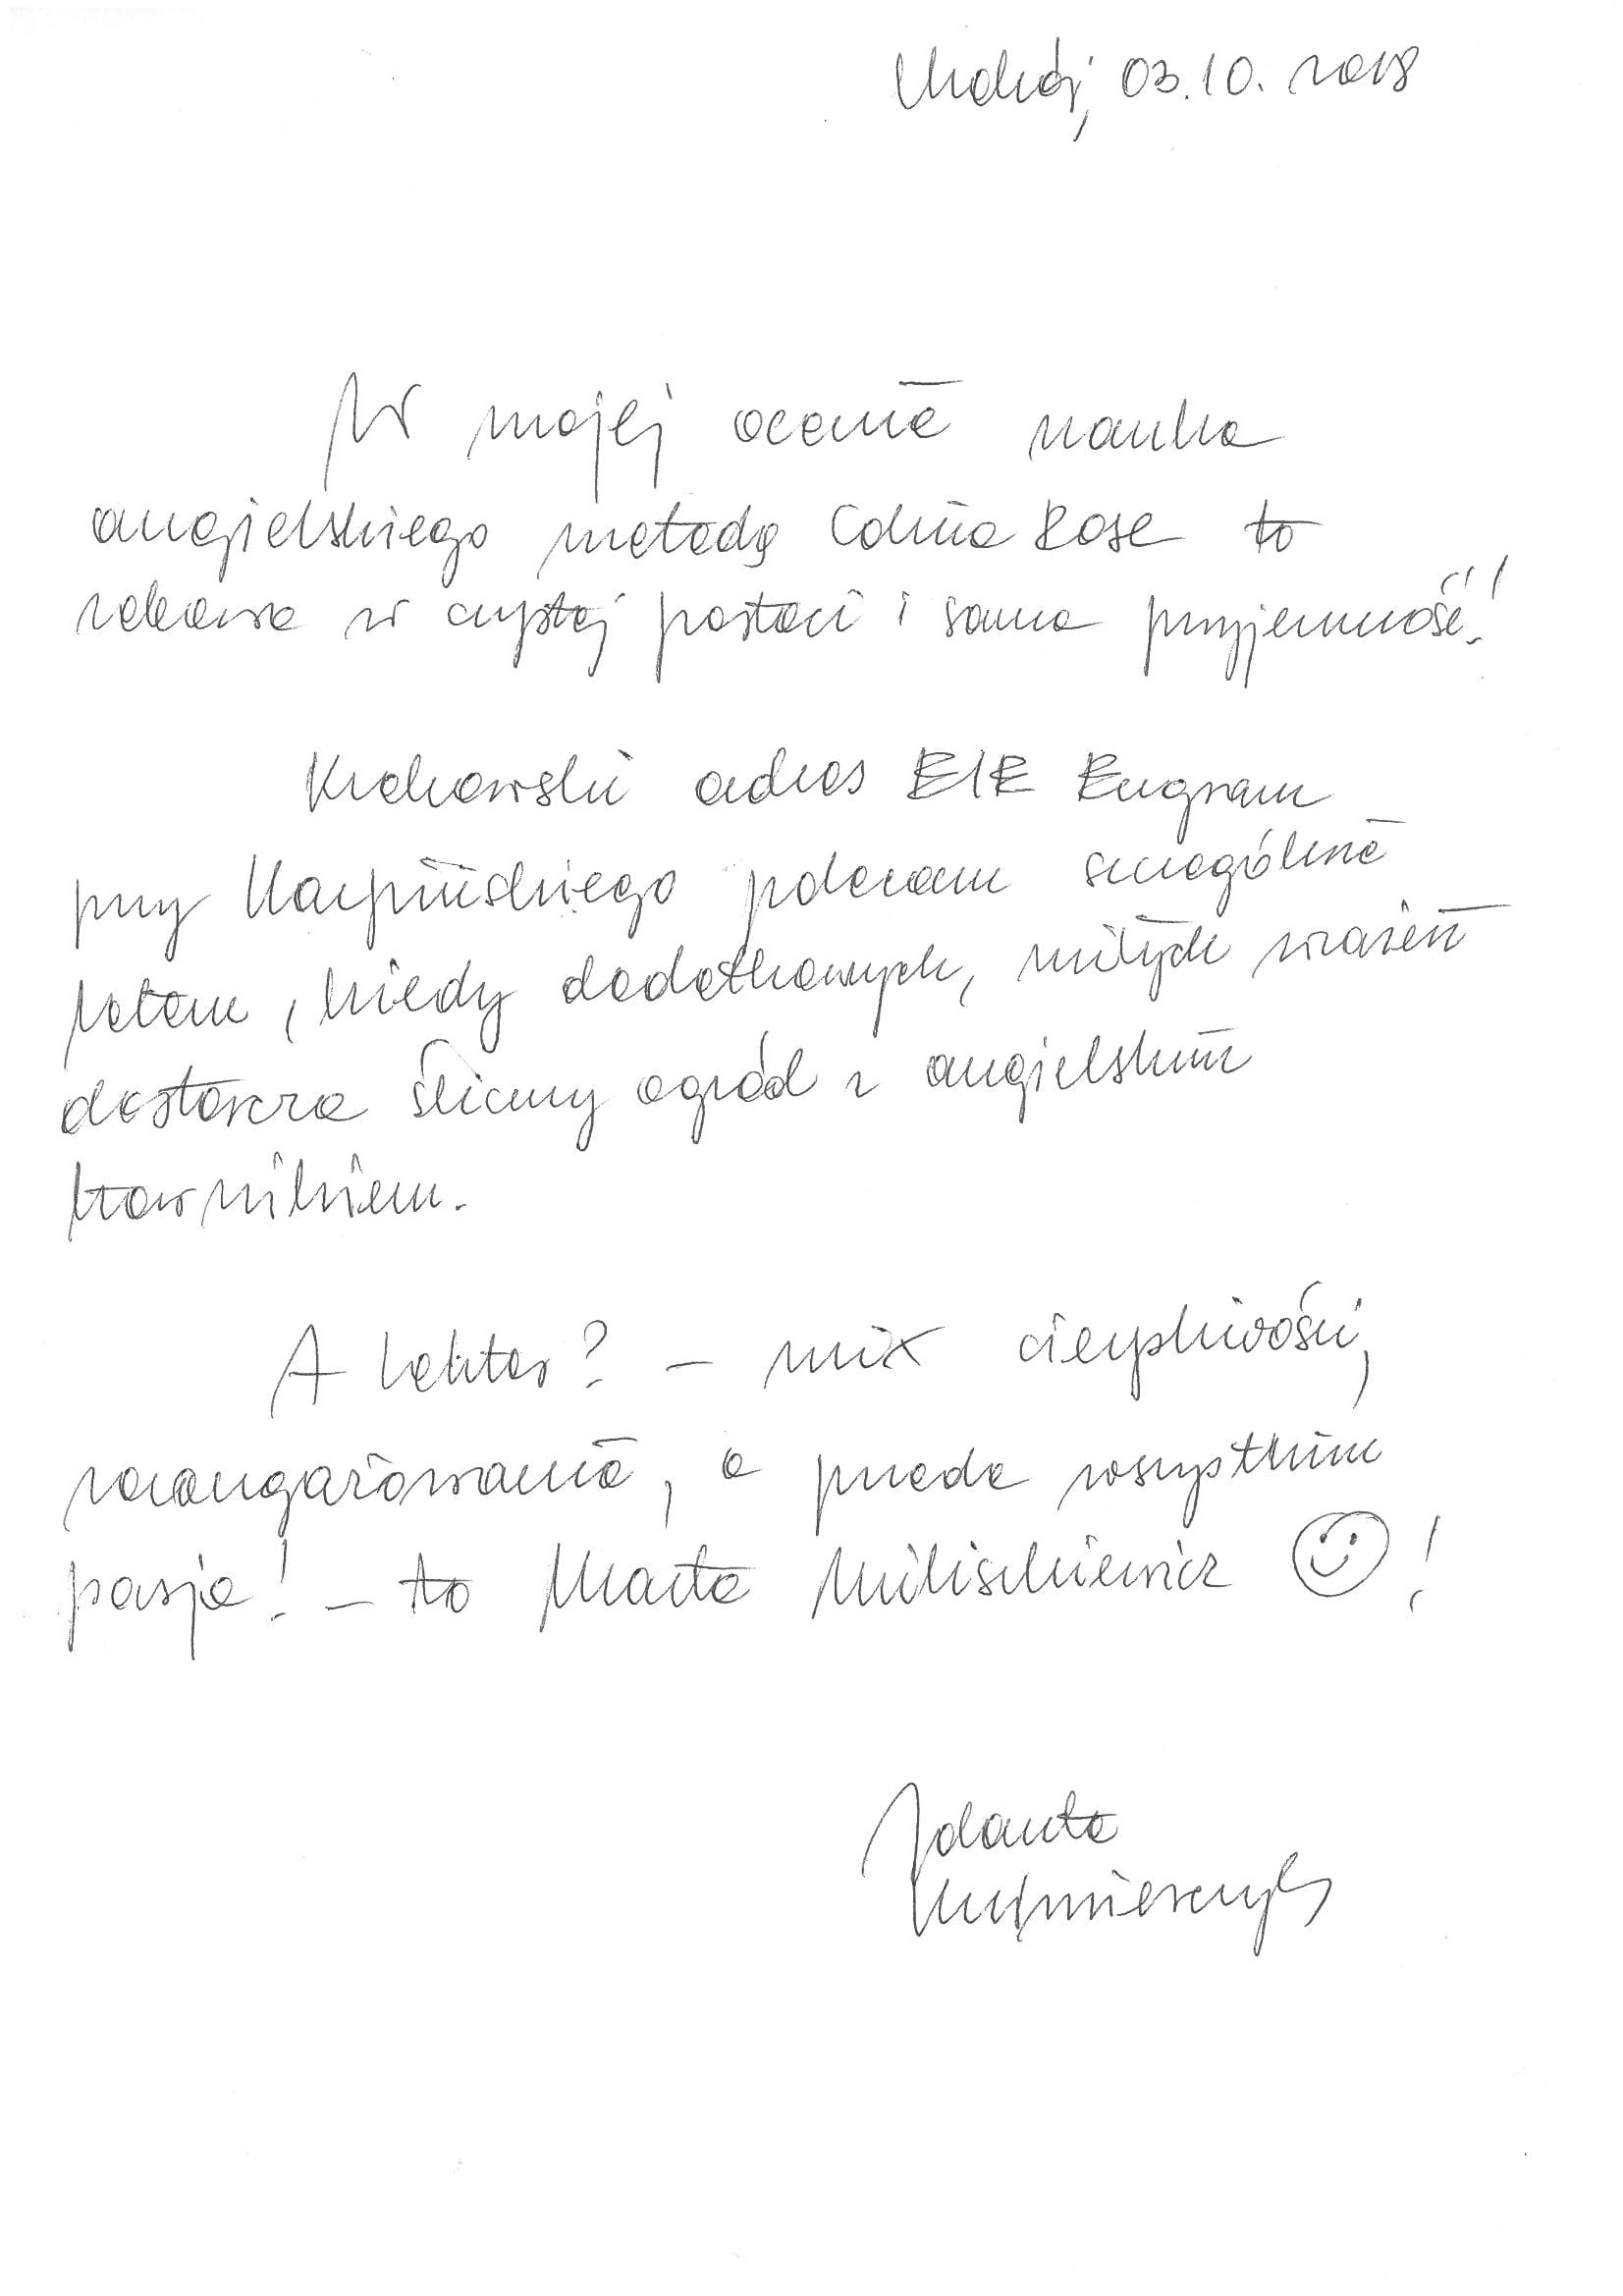 Kraków, 03.10.2018
W mojej ocenie nauka
angielskiego metodą Colina Rose to
zabawa w czystej postaci i sama przyjemność!
Krakowski adres EIE Engram
przy Karpińskiego polecam szczególnie
latem, kiedy dodatkowych, miłych wrażeń
dostarcza śliczny ogród z angielskim
trawnikiem.
A lektor? – mix cierpliwości,
zaangażowania, a przede wszystkim
pasja! – to Marta Miliszkiewicz ☺!
Jolanta